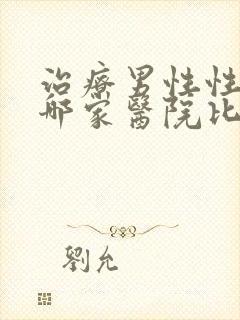 治療男性性
哪家醫院比
劉允